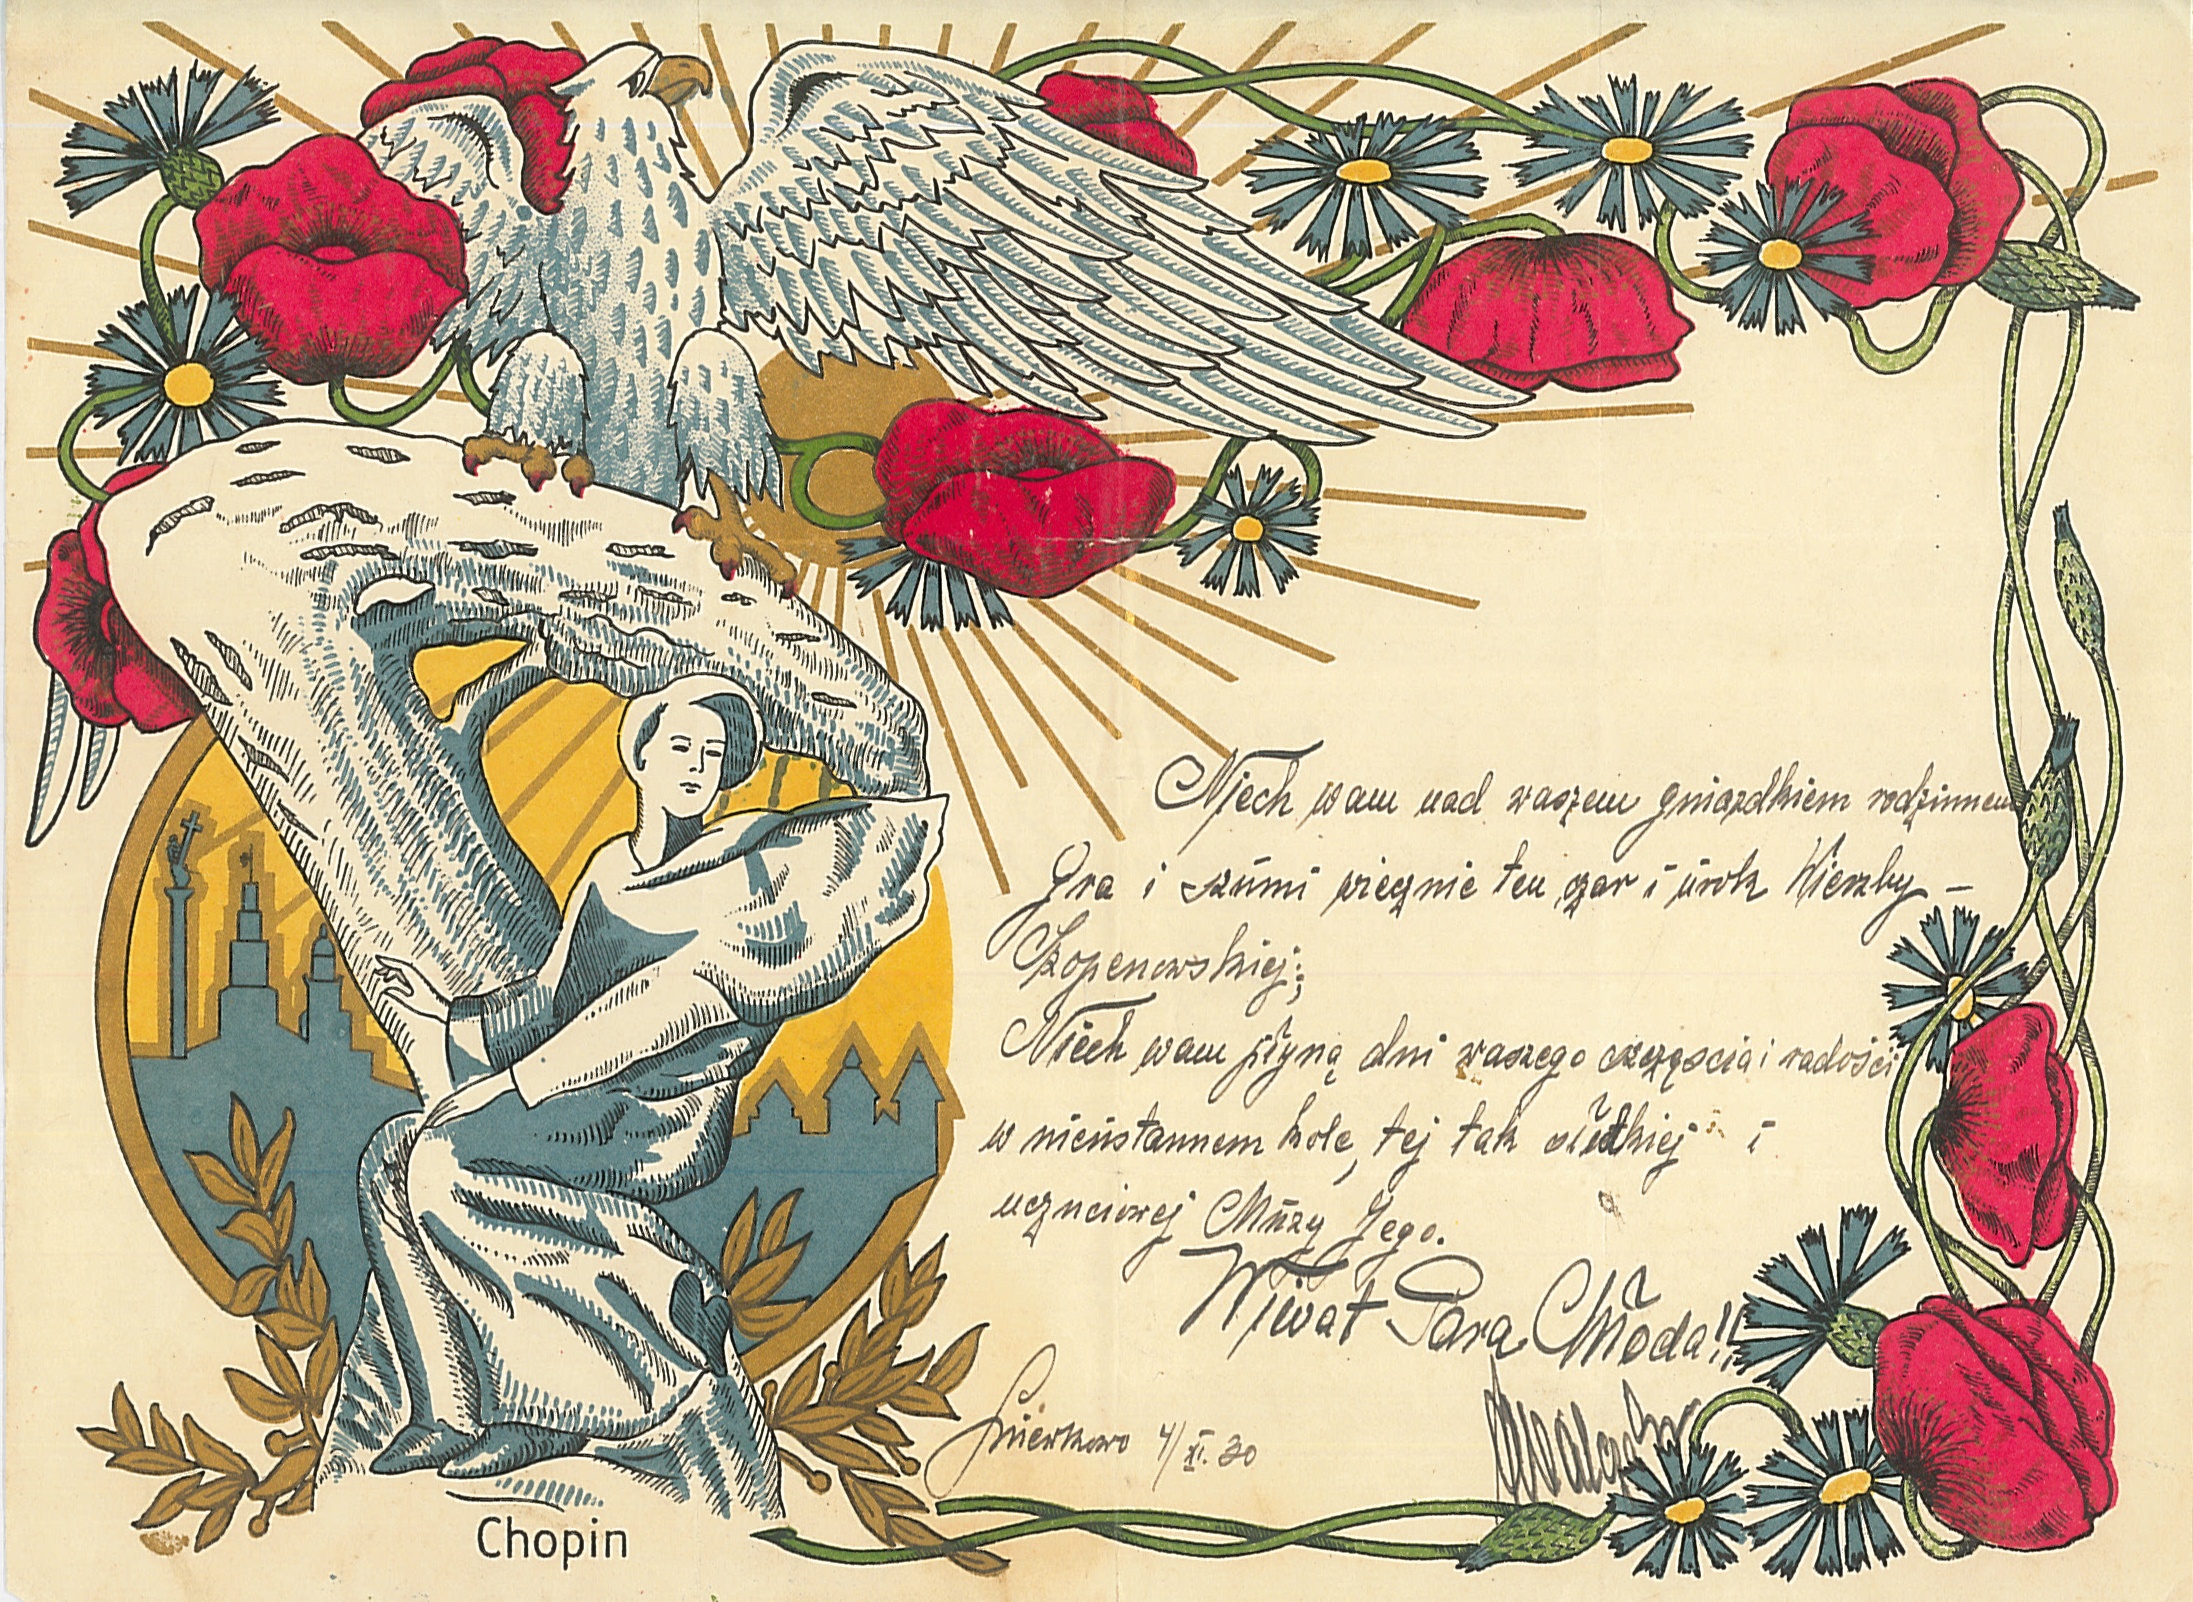 Niech wam nad waszem gniazdkiem rodzinnem
Gra i szumi wiecznie ten czar i urok Wierzby –
Szopenowskiej;
Niech wam płyną dni waszego szczęścia i radości
w nieustannem kole, tej tak słodkiej i
uczuciowej Muzy Jego.
Wiwat Para Młoda!!
4/XI.30
Chopin